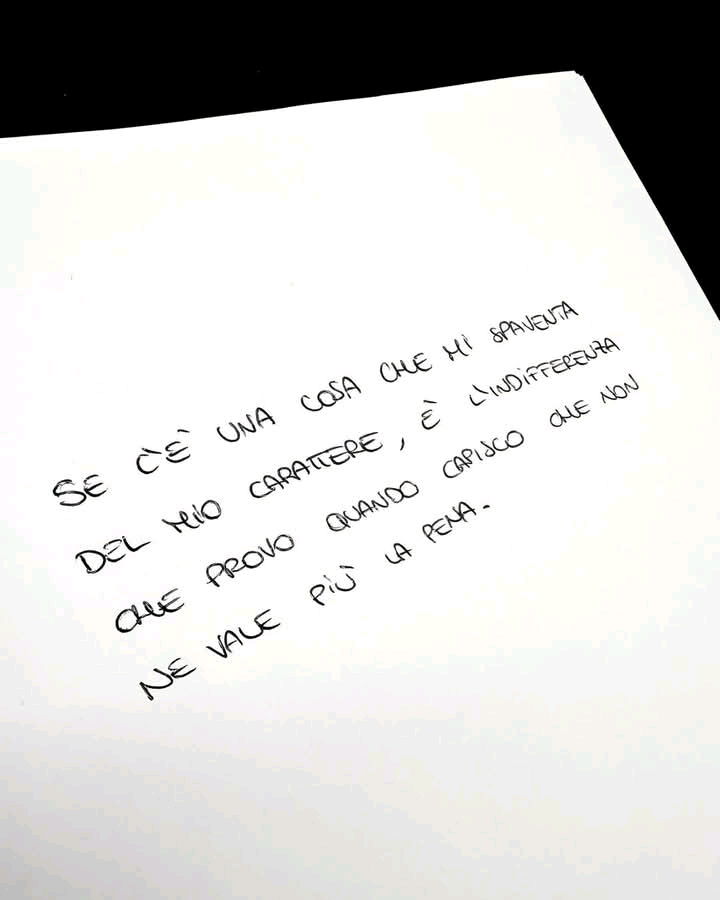 SE C'È UNA COSA CHE MI SPAVENTA
DEL MIO CARATTERE, È L'INDIFFERENZA
CHE PROVO QUANDO CAPISCO CHE NON
NE VALE PIÙ LA PENA.